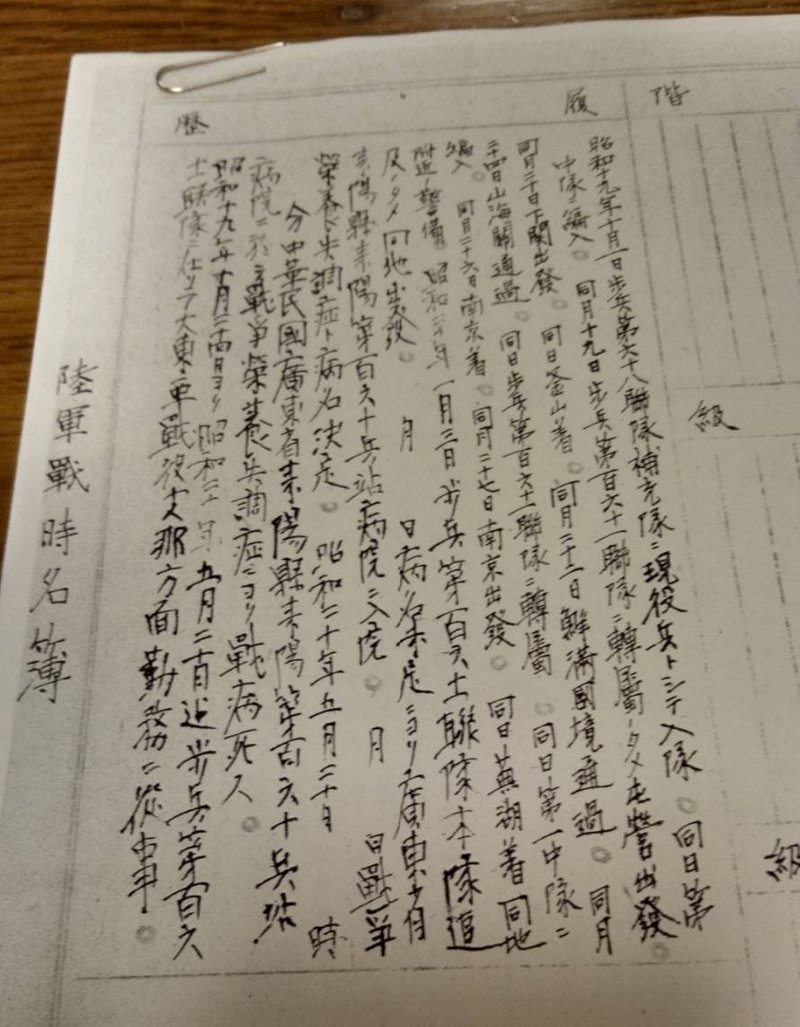 階
級
級
履
歴
昭和十九年十月一日歩兵第六十八聯隊補充隊ニ現役兵トシテ入隊。同日第
中隊ニ編入。同月十九日歩兵第百六十一聯隊ニ轉屬ノタメ屯營出發。
同月二十日下関出發。同日釜山着。同月二十二日鮮滿國境通過。同月
二十四日山海關通過。同日歩兵第百六十一聯隊ニ轉屬。同日第一中隊ニ
編入。同月二十六日南京着。同月二十七日南京出發。同日蕪湖着同地
附近ノ警備。昭和二十年一月三日歩兵第百六十一聯隊本隊追
及ノタメ同地出發。 月 日病名未定ニヨリ廣東省
耒陽縣耒陽第百六十兵站病院ニ入院。 月 日戰爭
榮養失調症ト病名決定。昭和二十年五月二十日 時
分中華民國廣東省耒陽縣耒陽第百六十兵站
病院ニ於テ戰爭榮養失調症ニヨリ戰病死ス。
昭和十九年十月二十四日ヨリ昭和二十年五月二十日迄歩兵第百六
十一聯隊ニ在リテ大東亜戰役支那方面勤務ニ從事。
陸軍戰時名簿